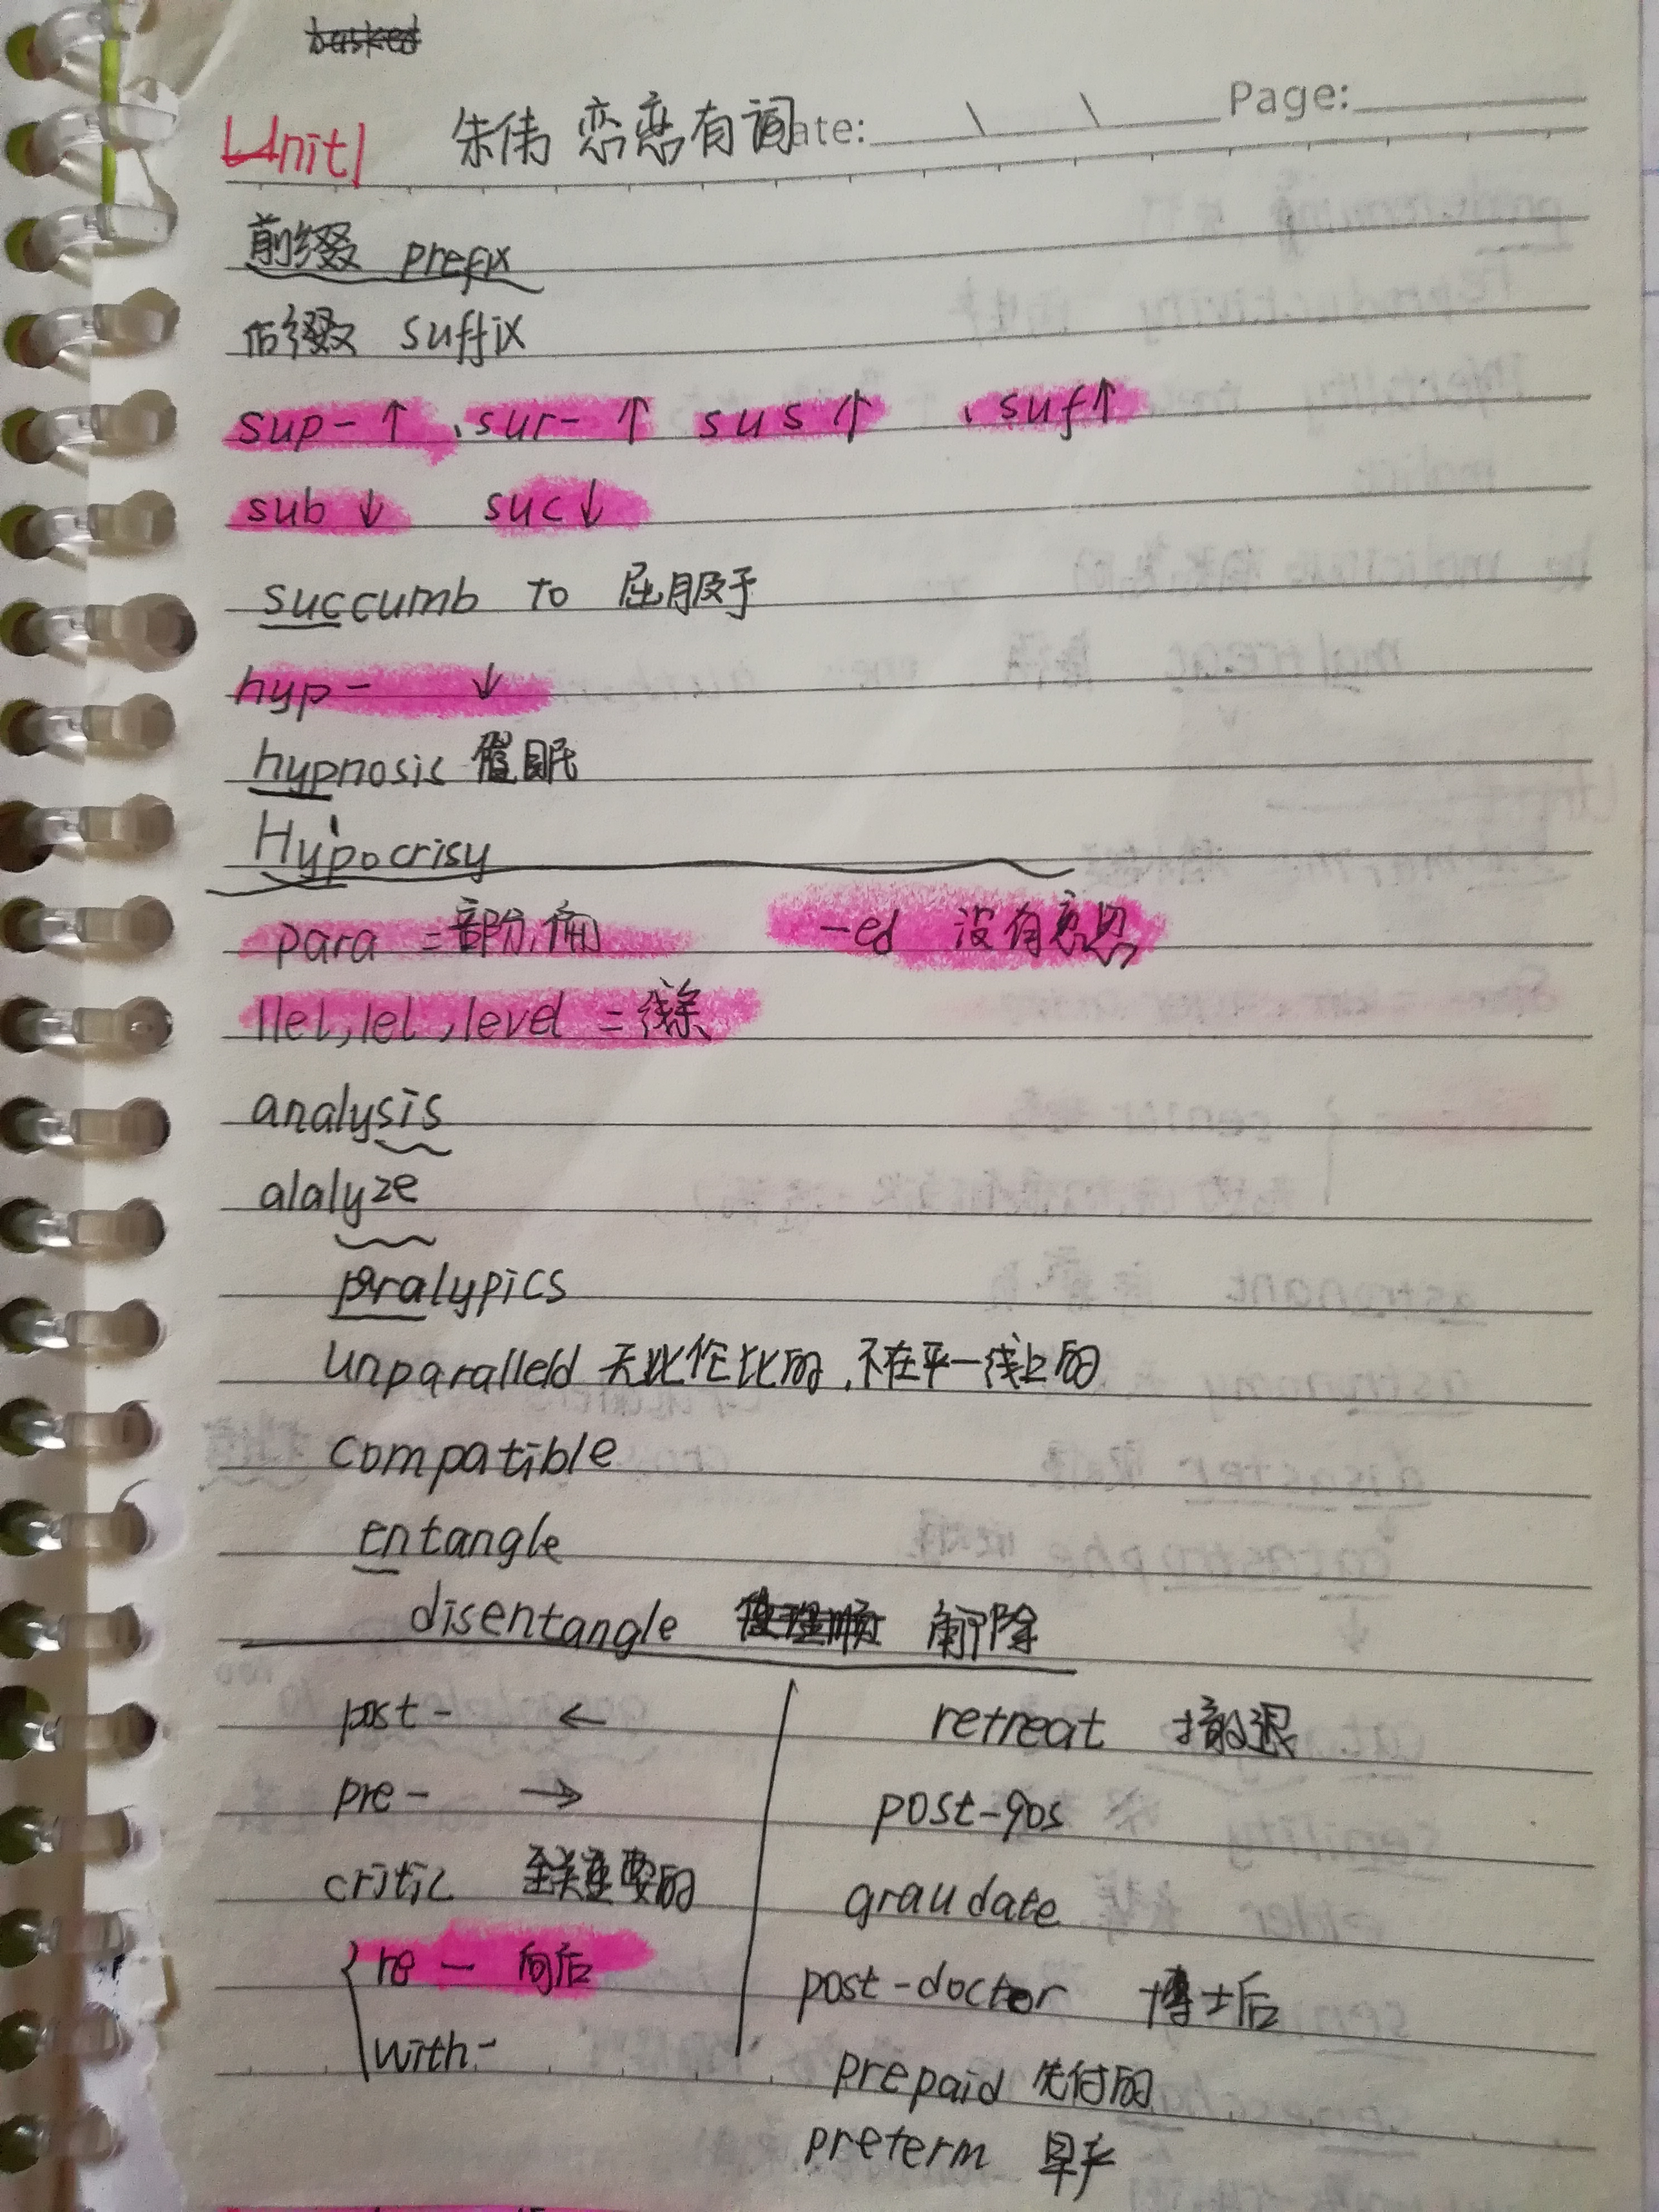 Unit1 朱伟 恋恋有词 Date: Page:
前缀 prefix
后缀 suffix
sup-↑、sur-↑ sus↑、suf↑
sub↓ suc↓
succumb to 屈服于
hyp- ↓
hypnosis 催眠
Hypocrisy
para =部分,偏 -ed 没有意思
llel,lel,level =线条
analysis
alalyze
pralypics
unparalleld 无比伦比的,不在平一线上的
compatible
entangle
disentangle 解除
post- ←
pre- →
critic 至关重要的
re- 向后
with-
retreat 撤退
post-90s
graudate
post-doctor 博士后
prepaid 先付的
preterm 早产